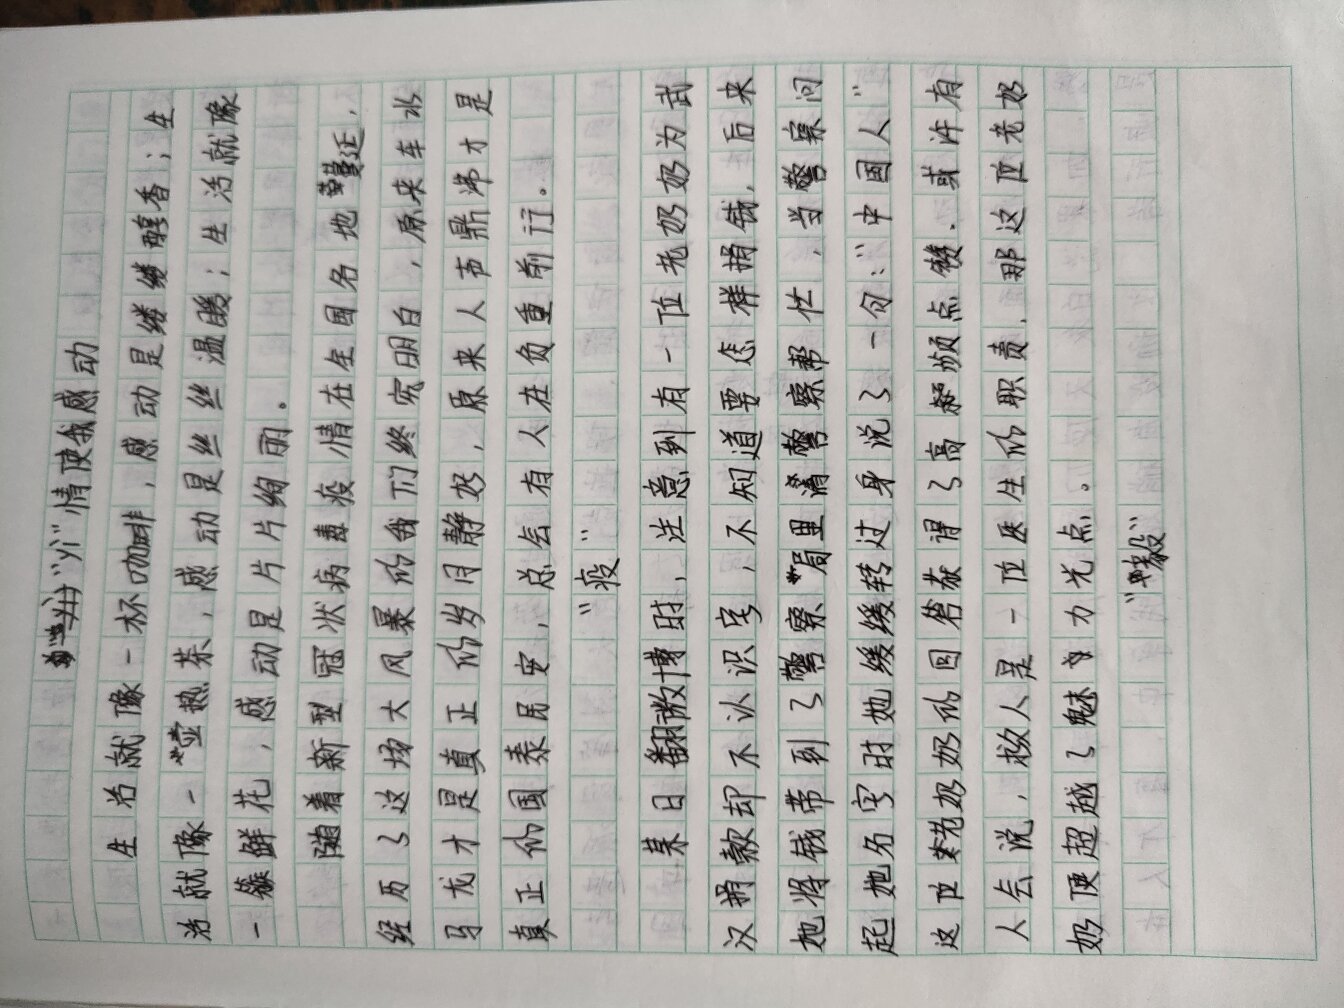 "yi"情使我感动
生活就像一杯咖啡，感动是缕缕醇香；生
活就像一壶热茶，感动是丝丝温暖；生活就像
一簇鲜花，感动是片片绚丽。
随着新型冠状病毒疫情在全国各地蔓延，
经历了这场大风暴的我们终究明白，原来车水
马龙才是真正的岁月静好，原来人声鼎沸才是
真正的国泰民安，总会有人在负重前行。
"疫"
某日翻微博时，注意到有一位老奶奶为武
汉捐款却不认识字，不知道要怎样捐钱，后来
她将钱带到了警察局里请警察帮忙，当警察问
起她名字时她缓缓转过身说了一句："中国人"
这位老奶奶的回答获得了高频点赞．或许有
人会说，救人是一位医生的职责．那这位老奶
奶便超越了魅力光点。
"毅"